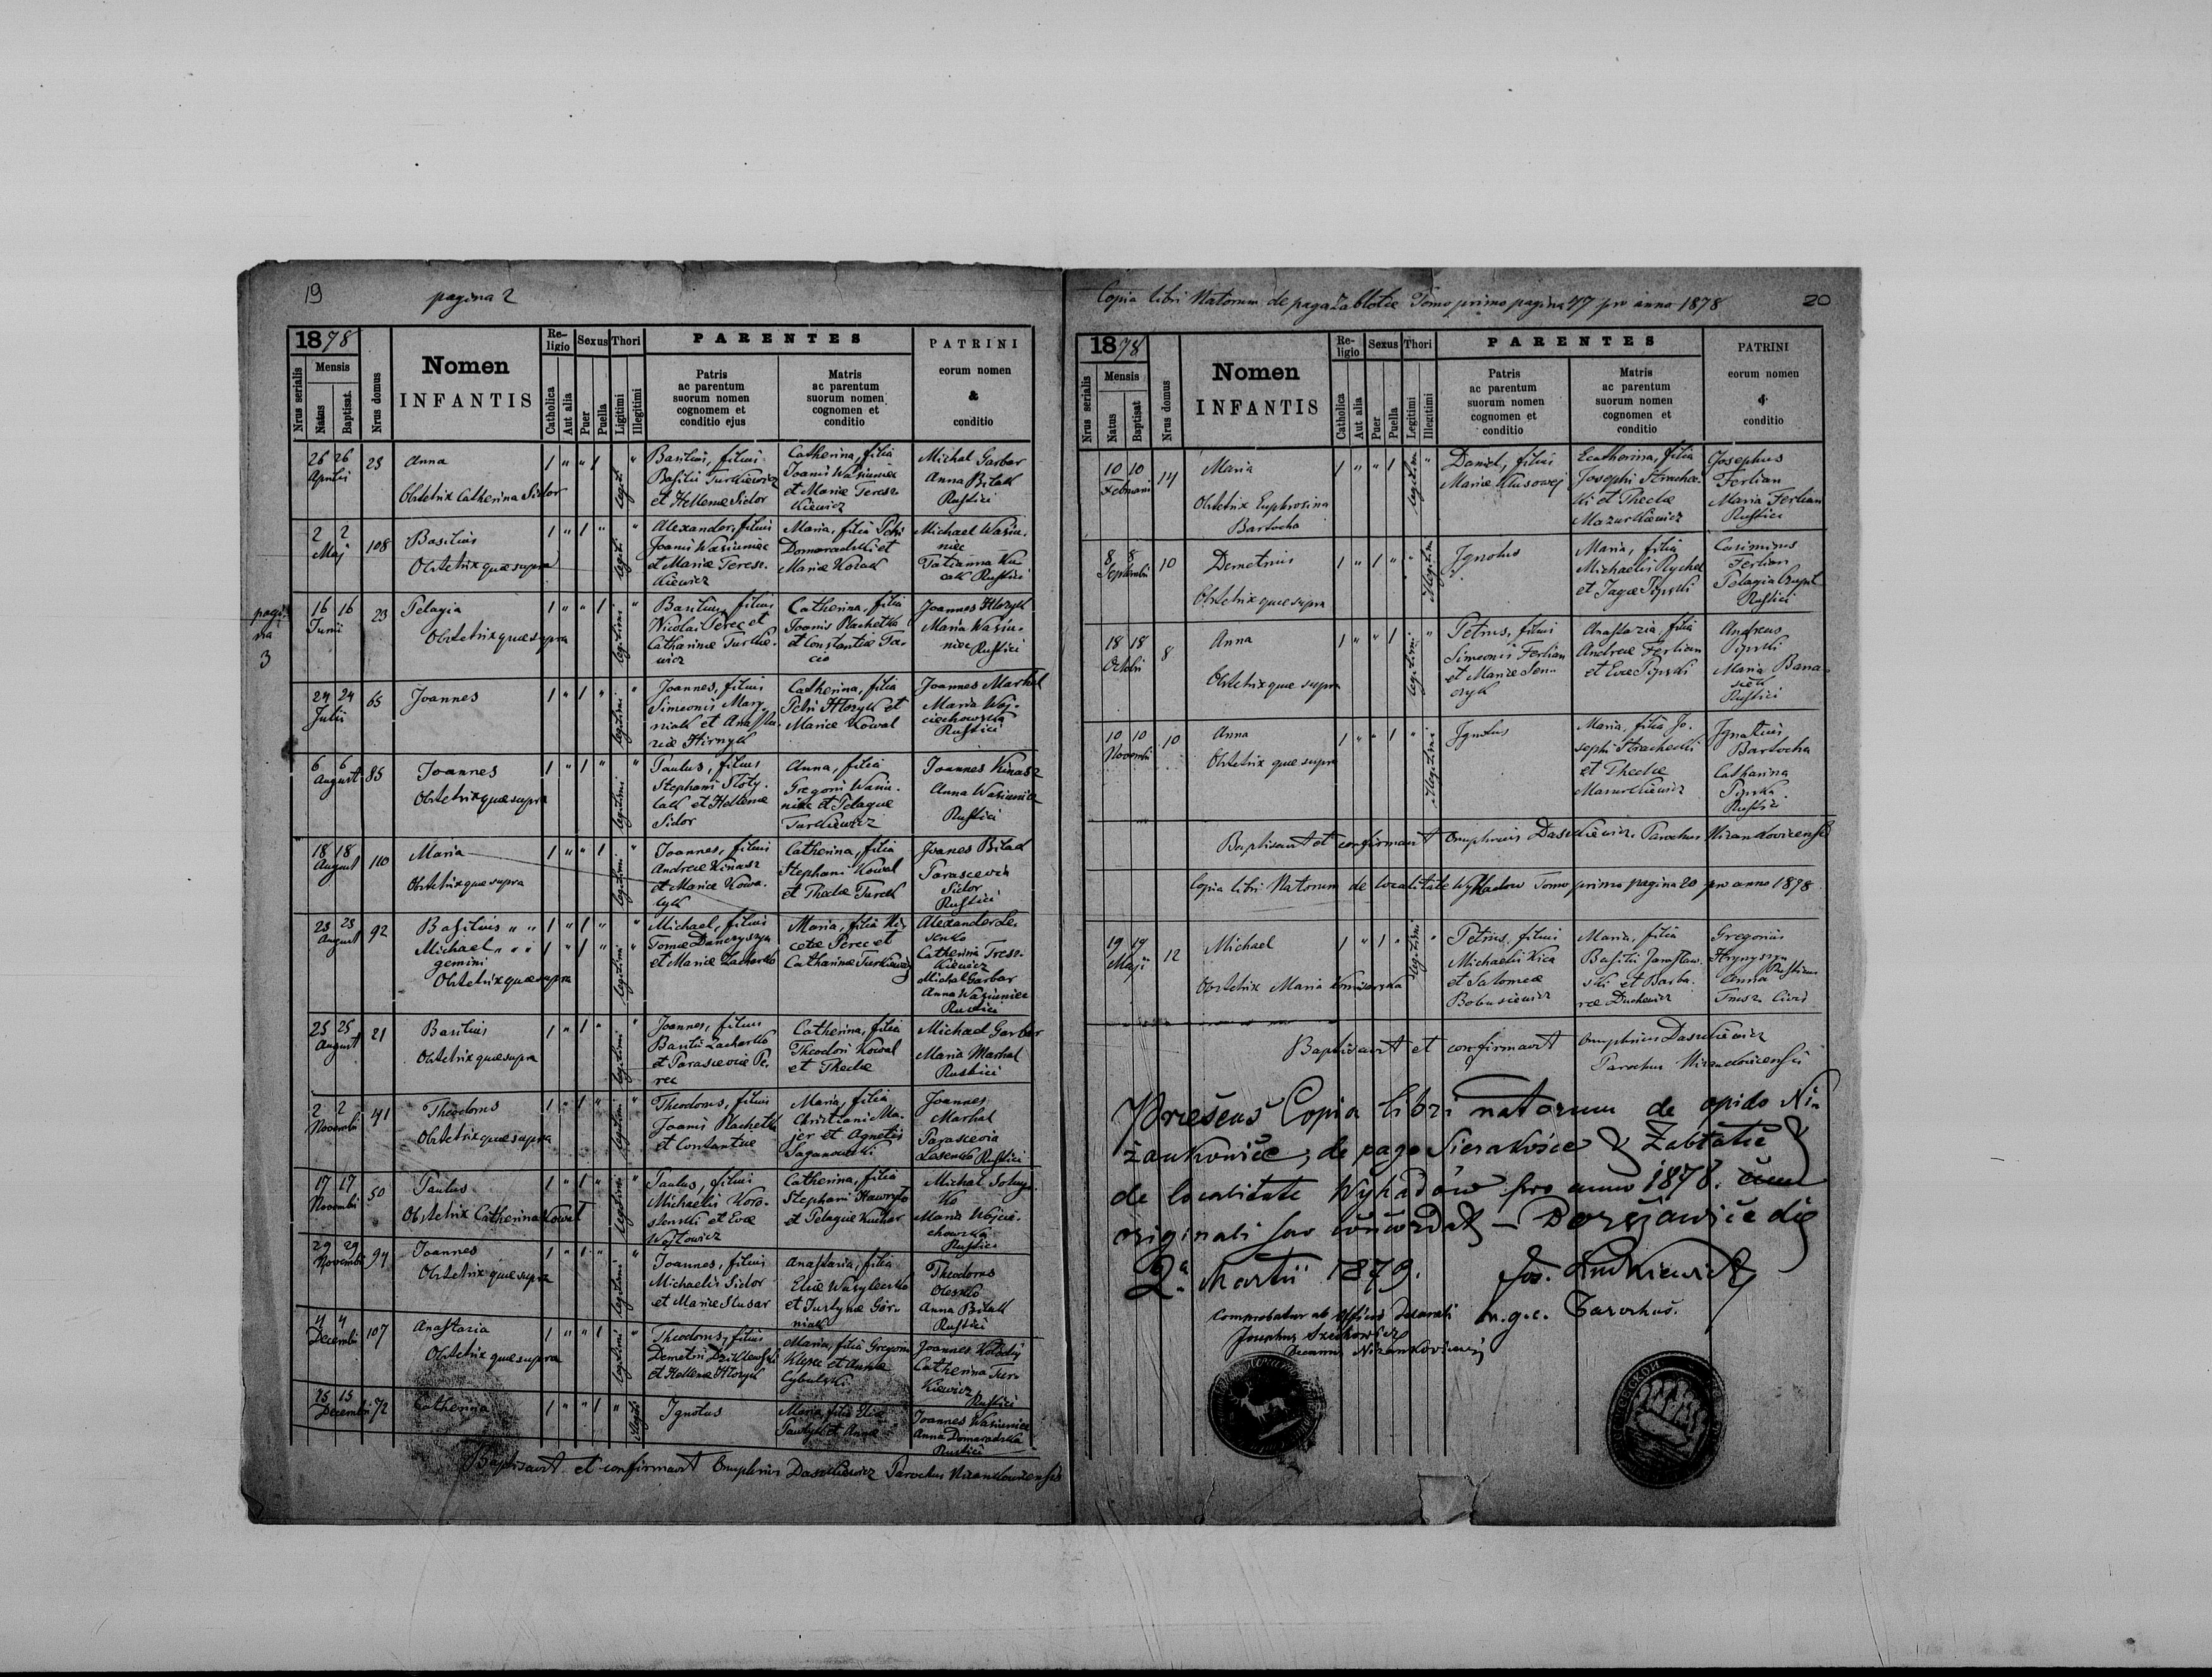 19
pagina 2
1878
Nrus serialis
Mensis
Natus
Baptisat.
Nrus domus
Nomen
INFANTIS
Re-
ligio
Catholica
Aut alia
Sexus
Puer
Puella
Thori
Ligitimi
Illegitimi
PARENTES
Patris
ac parentum
suorum nomen
cognomem et
conditio ejus
Matris
ac parentum
suorum nomen
cognomen et
conditio
PATRINI
eorum nomen
&
conditio
26 26
Aprilii
23
Anna
Obstetrix Catherina Sidor
Basilius, filius
Basilii Turkiewicz
et Hellenæ Sidor
Catherina, filia
Joannis Wasiuniec
et Mariæ Teresz-
kiewicz
Michal Garbar
Anna Bilak
Rustici
2 2
Maj
108
Basilius
Obstetrix quæ supra
Alexander, filius
Joannis Wasiuniec
et Mariæ Teresz-
kiewicz
Maria, filia Petri
Domaradzki et
Mariæ Kozak
Michael Wasiu-
niec
Tatianna Ku
cak Rustici
pagi-
na
3
16 16
Junii
23
Pelagia
Obstetrix quæ supra
Basilius, filius
Nicolai Perec et
Catharinæ Turkie-
wicz
Catherina, filia
Joannis Plachetka
et Constantiæ
Joannes Hlozyk
Maria Wasiu-
niec Rustici
24 24
Julii
65
Joannes
Joannes, filius
Simeonis Mary
niak et Anasta-
ziæ Hirnyk
Catherina, filia
Petri Hlozyk et
Mariæ Kowal
Joannes Markal
Maria Woj-
ciechowska
Rustici
6 6
August
85
Joannes
Obstetrix quæ supra
Paulus, filius
Stephani Sloty-
lak et Hellenæ
Sidor
Anna, filia
Gregorii Wasiu-
niec et Pelagiæ
Turkiewicz
Joannes Kinasz
Anna Wasiuniec
Rustici
18 18
August
110
Maria
Obstetrix quæ supra
Joannes, filius
Andreæ Kinasz
et Mariæ Kowa-
lyk
Catherina, filia
Stephani Kowal
et Theclæ Turek
Joanes Bilak
Parascevia
Sidor
Rustici
23 23
August
92
Basilius " "
Michael " "
gemini
Obstetrix quæ supra
Michael, filius
Tomæ Danczyszyn
et Mariæ Zacharko
Maria, filia Ni-
cetæ Perec et
Catharinæ Turkiewicz
Alexander Le-
senko
Catherina Tresz-
kiewicz
Michal Garbar
Anna Wasiuniec
Rustici
25 25
August
21
Basilius
Obstetrix quæ supra
Joannes, filius
Basilii Zacharko
et Parasceviæ Pe-
rec
Catherina, filia
Theodori Kowal
et Theclæ
Michael Garbar
Maria Markal
Rustici
2 2
Novembri
41
Theodorus
Obstetrix quæ supra
Theodorus, filius
Joannis Plachetka
et Constantiæ
Maria, filia
Christiani Ma-
jer et Agnetis
Saganowski
Joannes
Markal
Parascevia
Lesenko Rustici
17 17
Novembri
50
Paulus
Obstetrix Catherina Kowal
Paulus, filius
Michaelis Koro-
stenski et Evæ
Wojtowicz
Catherina, filia
Stephani Hawrylo
et Pelagiæ Kuchar
Michal Soluy-
ko
Maria Wojcie-
chowska
Rustici
29 29
Novembri
94
Joannes
Obstetrix quæ supra
Joannes, filius
Michaelis Sidor
et Mariæ Slusar
Anastazia, filia
Eliæ Wasylecsko
et Justynæ Gór-
niak
Theodorus
Olesko
Anna Bilak
Rustici
4 4
Decembri
107
Anastazia
Obstetrix quæ supra
Theodorus, filius
Demetrii
et Hellenæ Hlozyk
Maria, filia Gregorii
et Annæ
Cybulski
Joannes Kolodij
Catherina Tur-
kiewicz
Rustici
15 15
Decembri
72
Catherina
Ignotus
Maria, filia Eliæ
Pawlyk et Annæ
Joannes Wasiuniec
Anna Domaradzka
Rustici
Baptisavit et confirmavit Onuphrius Daszkiewicz Parochus Nizankovicensis
Copia libri Natorum de paga Zablotie Tomo primo pagina 47 pro anno 1878
20
1878
Nrus serialis
Mensis
Natus
Baptisat
Nrus domus
Nomen
INFANTIS
Re-
ligio
Catholica
Aut alia
Sexus
Puer
Puella
Thori
Legitimi
Illegitimi
PARENTES
Patris
ac parentum
suorum nomen
cognomen et
conditio
Matris
ac parentum
suorum nomen
cognomen et
conditio
PATRINI
eorum nomen
&
conditio
10 10
Februarii
14
Maria
Obstetrix Euphrosina
Bartocha
Daniel, filius
Mariæ Klusowej
Ecatherina, filia
Josephi Strachec-
ki et Theclæ
Mazurkiewicz
Josephus
Ferlian
Maria Ferlian
Rustici
8 8
Septembri
10
Demetrius
Obstetrix quæ supra
Ignotus
Maria, filia
Michaelis Rychel
et Jagæ Pipski
Casimirus
Ferlian
Pelagia
Rustici
18 18
Octobri
8
Anna
Obstetrix quæ supra
Petrus, filius
Simeonis Ferlian
et Mariæ Sen-
czyk
Anastazia, filia
Andreæ Ferlian
et Evæ Pipski
Andreas
Pipski
Maria Bana-
siek
Rustici
10 10
Novembri
10
Anna
Obstetrix quæ supra
Ignotus
Maria, filia Jo-
sephi Strachecki
et Theclæ
Mazurkiewicz
Ignatius
Bartocha
Catharina
Pipska
Rustici
Baptisavit et confirmavit Onuphrius Daszkiewicz Parochus Nizankovicensis
Copia libri Natorum de localitate Wyhadow Tomo primo pagina 20 pro anno 1878
19 19
Maji
12
Michael
Obstetrix Maria Komisarska
Petrus, filius
Michaelis Kica
et Salomeæ
Bobusiewicz
Maria, filia
Basilii Jaroslaw-
ski et Barba-
ræ Duchewicz
Gregorius
Hrynyszyn
Rusticus
Anna
Baptisavit et confirmavit Onuphrius Daszkiewicz
Parochus Nizankovicensis
Præsens Copia libri natorum de opido Ni-
żankowice, de pago Sierakośce & Zabłotie &
de localitate Wyhadów pro anno 1878. cum
originali suo concordat –
die
2a Martii 1879.
m.g.c. Parochus.
Comprobatur ab Officio Decanali
Josephus
Decanus Nizankovicensis